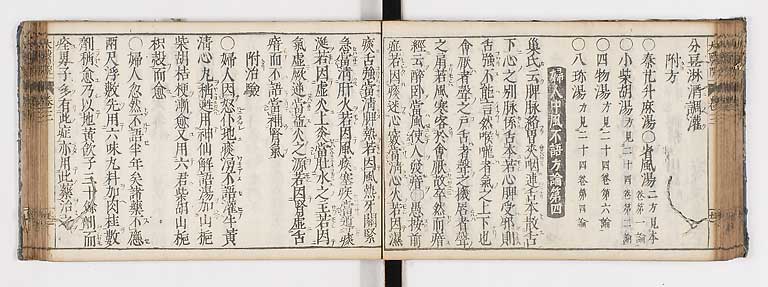 分豆淋酒調灌
附方
○秦艽升麻湯○省風湯二方見本卷第一論
○小柴胡湯方見二十四卷第二論
○四物湯方見二十四卷第六論
○八珍湯方見二十四卷第四論
婦人中風不語方論第四
巢氏云脾脈絡胃夾咽連舌本散舌
下心之別脈係舌本若心脾受邪則
舌強不能言然喉嚨者氣之上下也
會厭者聲之戶舌者聲之機唇者聲
之扇若風寒客於會厭故卒然而瘖
經云醉卧當風使人發瘖○愚按前
症若因痰迷心竅當清心火若因濕
痰舌強當清脾熱若因風熱牙關緊
急當清肝火若因風痰塞當導痰
涎若因虛火上炎當壯水之主若因
氣虛厥逆當益火之源若因腎虛舌
瘖而不語當補腎氣
附治驗
○婦人因怒仆地痰湧不語灌牛黃
清心丸稍甦用神仙解語湯加山梔
柴胡桔梗漸愈又用六君柴胡山梔
枳殼而愈
○婦人忽然不語半年矣諸藥不應
兩尺浮數先用六味丸料加肉桂數
劑稍愈乃以地黃飲子三十餘劑而
痊男子多有此症亦用此藥治